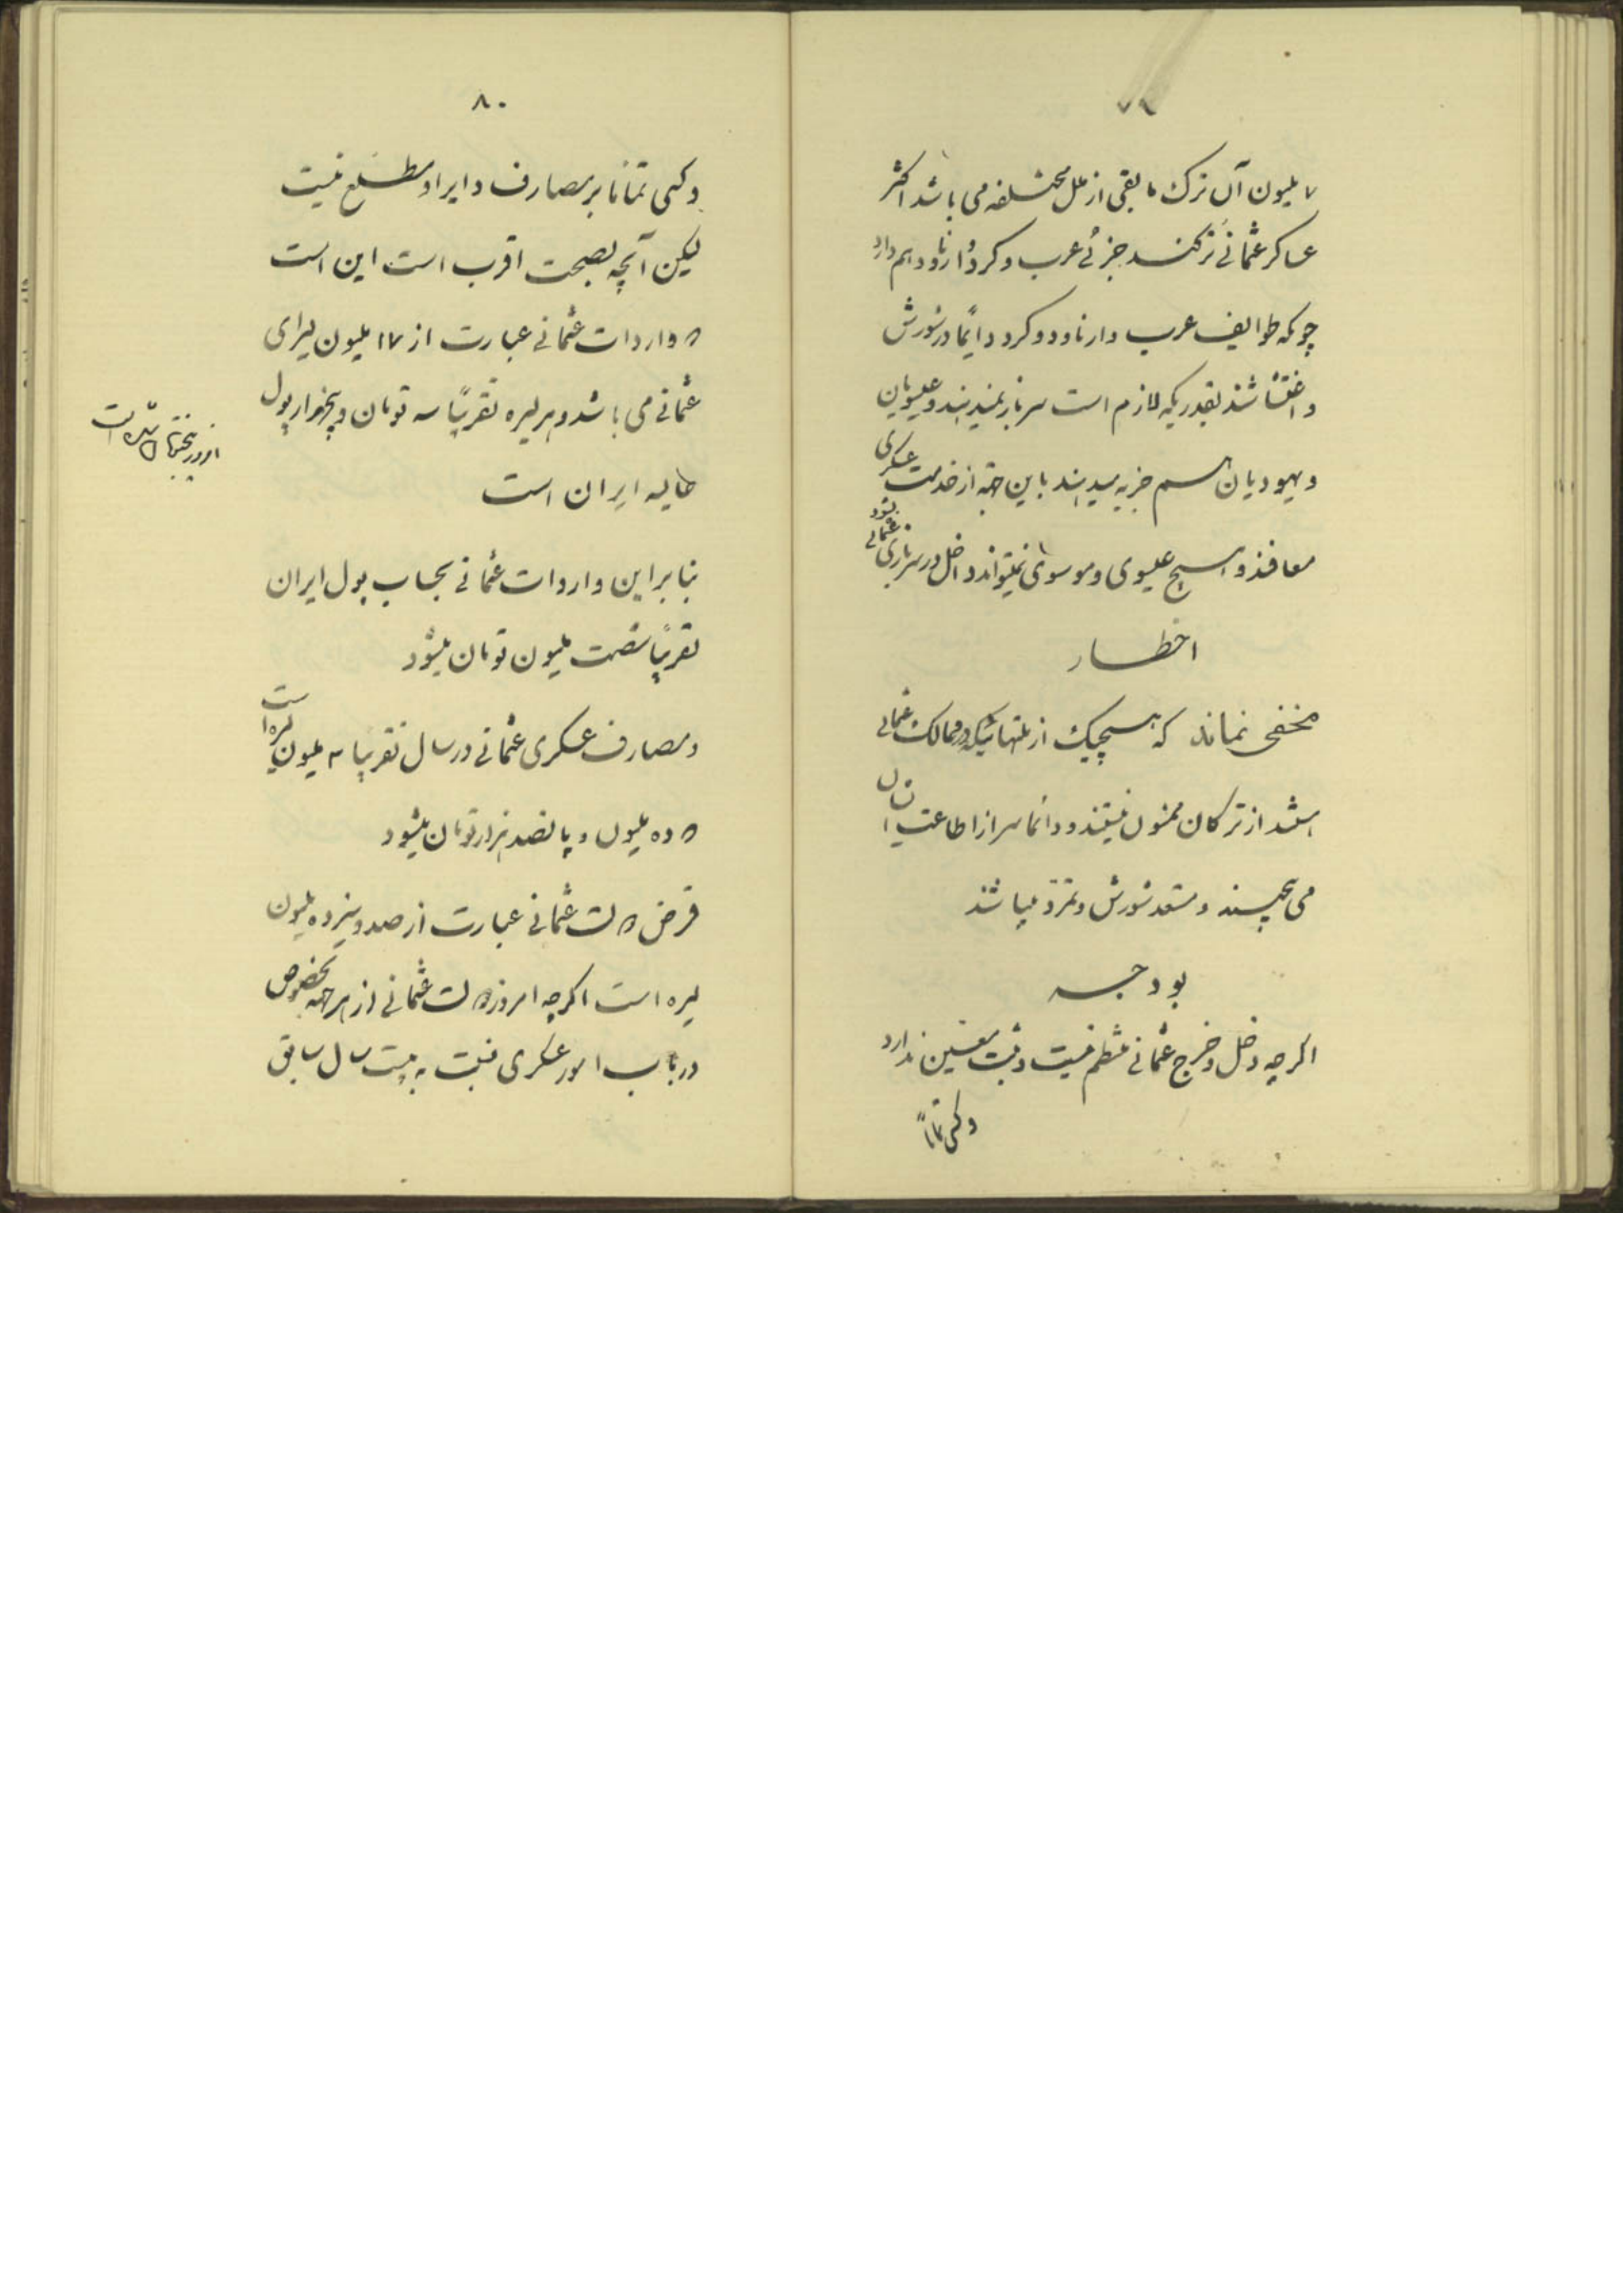 ۷۹
۷ ملیون آن ترک مابقی از ملل مختلفه می باشد اکثر
عساکر عثمانی ترکند جزئی عرب و کرد و ارناود هم دارد
چونکه طوایف عرب و ارناود و کرد دایما در شورش
و اغتشاشند بقدریکه لازم است سرباز نمیدهند و عیسویان
و یهودیان هم جزیه میدهند باین جهة از خدمت عسکری
معافند و هیچ عیسوی و موسوی نمیتواند داخل در سربازی عثمانی بشود
اخطار
مخفی نماند که هیچیک از ملتهائیکه در ممالک عثمانی
هستند از ترکان ممنون نیستند و دائما سر از اطاعت ایشان
می پیچند و مستعد شورش و تمرد میباشند
بودجه
اگرچه دخل و خرج عثمانی منظم نیست و ثبت معین ندارد
و کسی تماماً
۸۰
و کسی تماما بر مصارف و ایراد مطلع نیست
لیکن آنچه بصحت اقرب است این است
که واردات عثمانی عبارت از ۱۷ ملیون لیرای
عثمانی می باشد و هر لیره تقریباً سه تومان و پنجهزار پول
حالیه ایران است
امروز پنجتومان شده است
بنابراین واردات عثمانی بحساب پول ایران
تقریباً شصت ملیون تومان میشود
و مصارف عسکری عثمانی در سال تقریباً سه ملیون لیره است
که ده ملیون و پانصد هزار تومان میشود
قرض دولت عثمانی عبارت از صد و سیزده ملیون
لیره است اگرچه امروز دولت عثمانی از هر جهة بخصوص
در باب امور عسکری نسبت به بیست سال سابق